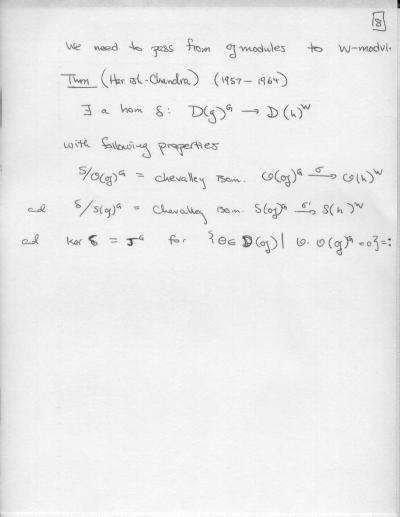 8
We need to pass from g modules to W-modul.
Thm (Harish-Chandra) (1957-1964)
∃ a hom δ: D(g)^G → D(h)^W
with following properties
δ/O(g)^G = Chevalley isom. O(g)^G →^σ O(h)^W
ad δ/S(g)^G = Chevalley isom. S(g)^G →^σ' S(h)^W
ad ker δ = J^G for {θ∈ D(g) | θ. O(g)^G = 0} =: